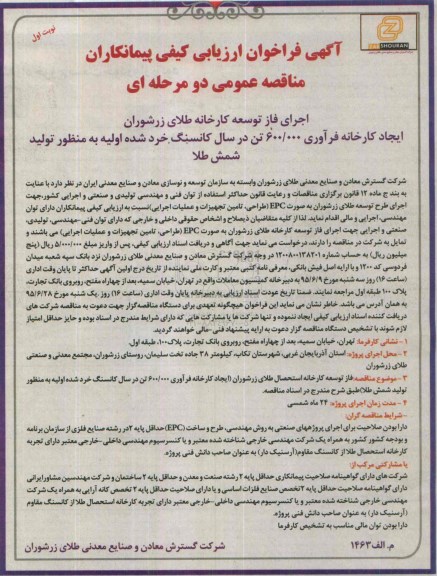 نوبت اول
SHOURAN
آگهی فراخوان ارزیابی کیفی پیمانکاران
مناقصه عمومی دو مرحله ای
اجرای فاز توسعه کارخانه طلای زرشوران
ایجاد کارخانه فرآوری ۶۰۰/۰۰۰ تن در سال کانسنگ خرد شده اولیه به منظور تولید
شمش طلا
شرکت گسترش معادن و صنایع معدنی طلای زرشوران وابسته به سازمان توسعه و نوسازی معادن و صنایع معدنی ایران در نظر دارد با عنایت
به بند ج ماده ۱۲ قانون برگزاری مناقصات و رعایت قانون حداکثر استفاده از توان فنی و مهندسی تولیدی و صنعتی و اجرایی کشور، جهت
اجرای طرح توسعه طلای زرشوران به صورت EPC (طراحی، تامین تجهیزات و عملیات اجرایی) نسبت به ارزیابی کیفی پیمانکاران دارای توان
مهندسی، اجرایی و مالی اقدام نماید. لذا از کلیه متقاضیان ذیصلاح و اشخاص حقوقی داخلی و خارجی که دارای توان فنی-مهندسی، تولیدی،
صنعتی و اجرایی جهت اجرای فاز توسعه کارخانه طلای زرشوران به صورت EPC (طراحی، تامین تجهیزات و عملیات اجرایی) می باشند و
تمایل به شرکت در مناقصه را دارند، درخواست می نماید جهت آگاهی و دریافت اسناد ارزیابی کیفی، پس از واریز مبلغ ۵/۰۰۰/۰۰۰ ریال (پنج
میلیون ریال) به حساب شماره ۱۲۰۰۸۰۰۱۳۸۲۰۱ در وجه شرکت گسترش معادن و صنایع معدنی طلای زرشوران نزد بانک سپه شعبه میدان
فردوسی کد ۱۲۰۰ و با ارایه اصل فیش بانکی، معرفی نامه کتبی معتبر و کارت ملی نماینده از تاریخ درج اولین آگهی حداکثر تا پایان وقت اداری
(ساعت ۱۶) روز سه شنبه مورخ ۹۵/۶/۹ به دبیرخانه کمیسیون معاملات واقع در تهران، خیابان سمیه، بعد از چهاراه مفتح، روبروی بانک تجارت،
پلاک ۱۰۰ طبقه اول مراجعه نمایند. ضمنا تاریخ عودت اسناد ارزیابی به دبیرخانه پایان وقت اداری (ساعت ۱۶) روز یک شنبه مورخ ۹۵/۶/۲۸
به همان آدرس می باشد. خاطر نشان می نماید این فراخوان هیچگونه تعهدی برای دستگاه مناقصه گزار جهت دعوت به مناقصه شرکت های
دریافت کننده اسناد ارزیابی کیفی ایجاد ننموده و تنها شرکت ها یا مشارکت هایی که دارای شرایط مندرج در اسناد بوده و حایز حداقل امتیاز
لازم شوند با تشخیص دستگاه مناقصه گزار دعوت به ارایه پیشنهاد فنی-مالی خواهند گردید.
۱ - نشانی کارفرما: تهران، خیابان سمیه، بعد از چهاراه مفتح، روبروی بانک تجارت، پلاک۱۰۰، طبقه اول.
۲ - محل اجرای پروژه: استان آذربایجان غربی، شهرستان تکاب، کیلومتر ۳۸ جاده تخت سلیمان، روستای زرشوران، مجتمع معدنی و صنعتی
طلای زرشوران
۳ - موضوع مناقصه: فاز توسعه کارخانه استحصال طلای زرشوران (ایجاد کارخانه فرآوری ۶۰۰/۰۰۰ تن در سال کانسنگ خرد شده اولیه به منظور
تولید شمش طلا) طبق شرح مندرج در اسناد مناقصه.
۴ - مدت زمان اجرای پروژه: ۲۴ ماه شمسی
-شرایط مناقصه گران:
دارا بودن صلاحیت برای اجرای پروژههای صنعتی به روش مهندسی، طرح و ساخت (EPC) حداقل پایه ۲ در رشته صنایع فلزی از سازمان برنامه
و بودجه کشور به همراه یک شرکت مهندسی خارجی شناخته شده معتبر و یا کنسرسیوم مهندسی داخلی-خارجی معتبر دارای تجربه
کارخانه استحصال طلا از کانسنگ مقاوم (آرسنیک دار) به عنوان صاحب دانش فنی پروژه.
یا مشارکتی مرکب از:
شرکت های دارای گواهینامه صلاحیت پیمانکاری حداقل پایه ۲ رشته صنعت و معدن و حداقل پایه ۲ ساختمان و شرکت مهندسین مشاور ایرانی
دارای گواهینامه صلاحیت حداقل پایه ۲ تخصص صنایع فلزات اساسی و یا دارای صلاحیت حداقل پایه ۲ تخصص کانه آرایی به همراه یک شرکت
مهندسی خارجی شناخته شده معتبر و یا کنسرسیوم مهندسی داخلی-خارجی معتبر دارای تجربه کارخانه استحصال طلا از کانسنگ مقاوم
(آرسنیک دار) به عنوان صاحب دانش فنی پروژه.
دارا بودن توان مالی مناسب به تشخیص کارفرما
م.الف۱۴۶۳
شرکت گسترش معادن و صنایع معدنی طلای زرشوران